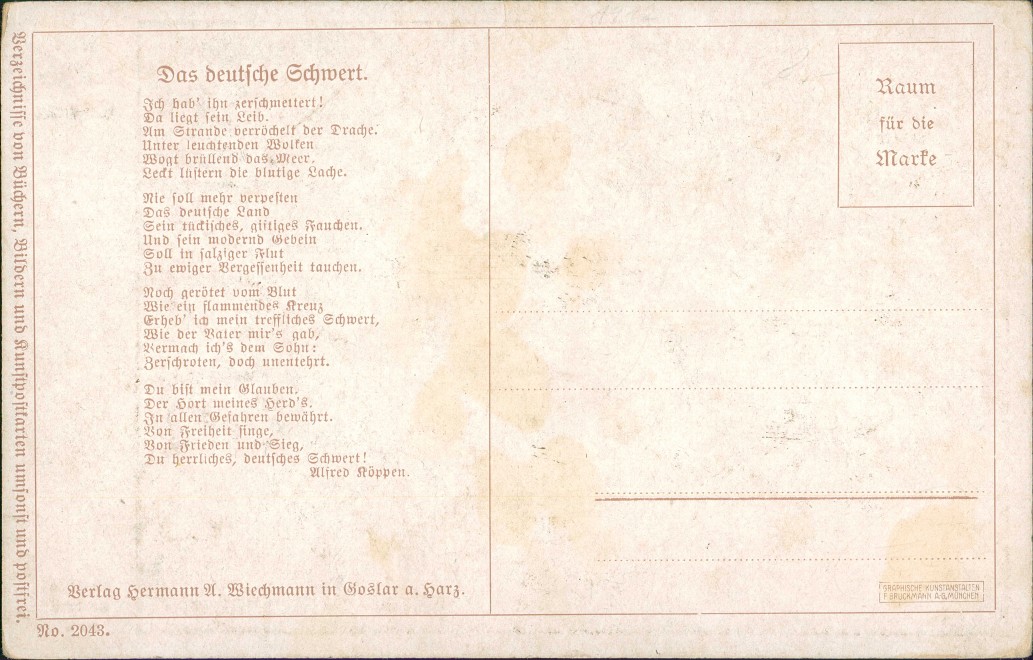 Verzeichnisse von Büchern, Bildern und Kunstpostkarten umsonst und postfrei.
Das deutsche Schwert.
Ich hab' ihn zerschmettert!
Da liegt sein Leib.
Am Strande verröchelt der Drache.
Unter leuchtenden Wolken
Wogt brüllend das Meer,
Leckt lüstern die blutige Lache.
Nie soll mehr verpesten
Das deutsche Land
Sein tückisches, giftiges Fauchen.
Und sein modernd Gebein
Soll in salziger Flut
Zu ewiger Vergessenheit tauchen.
Noch gerötet vom Blut
Wie ein flammendes Kreuz
Erheb' ich mein treffliches Schwert,
Wie der Vater mir's gab,
Vermach ich's dem Sohn:
Zerschroten, doch unentehrt.
Du bist mein Glauben.
Der Hort meines Herd's.
In allen Gefahren bewährt.
Von Freiheit singe,
Von Frieden und Sieg,
Du herrliches, deutsches Schwert!
Alfred Köppen.
Verlag Hermann A. Wiechmann in Goslar a. Harz.
No. 2043.
Raum
für die
Marke
GRAPHISCHE KUNSTANSTALTEN
F. BRUCKMANN A.G. MÜNCHEN